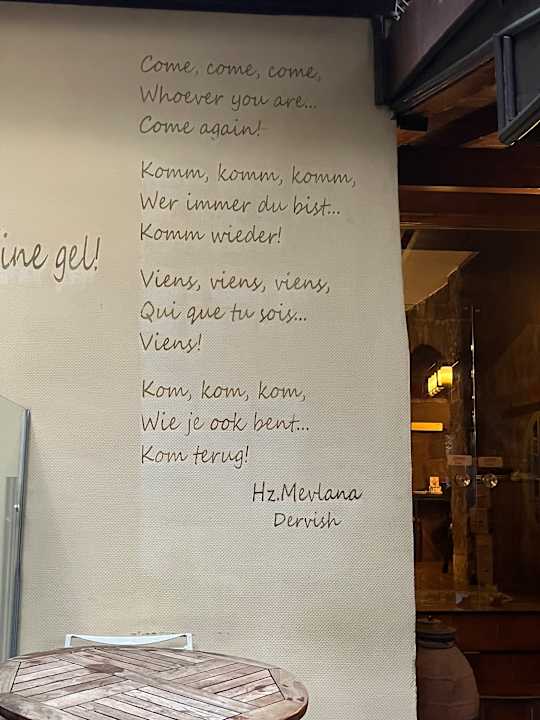 ine gel!
Come, come, come,
Whoever you are...
Come again!
Komm, komm, komm,
Wer immer du bist...
Komm wieder!
Viens, viens, viens,
Qui que tu sois...
Viens!
Kom, kom, kom,
Wie je ook bent...
Kom terug!
Hz.Mevlana
Dervish